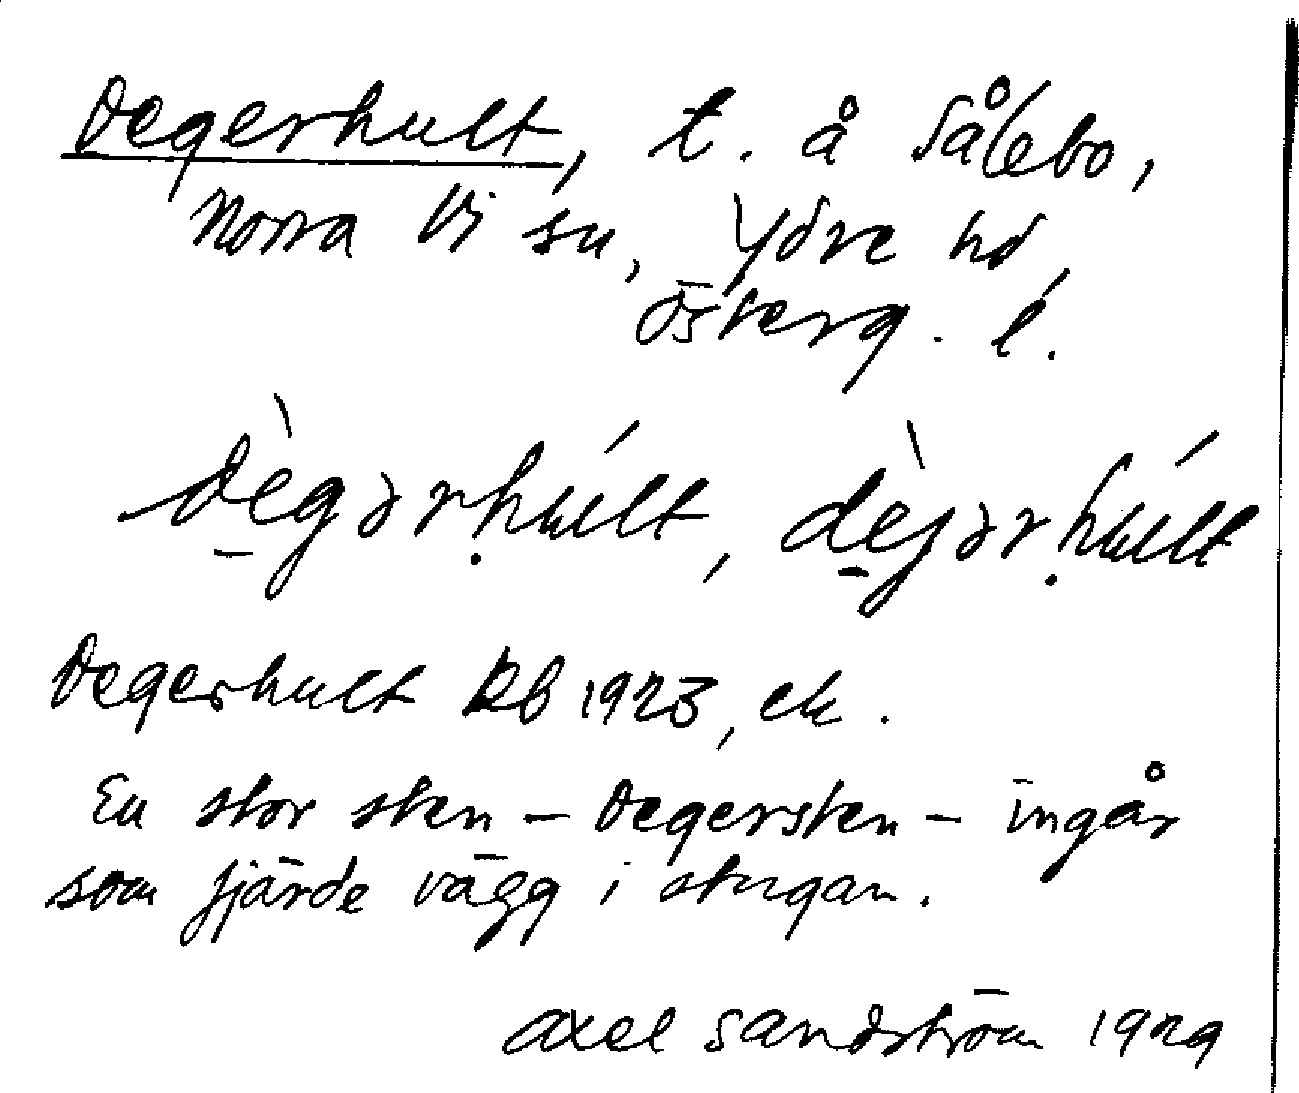 Degerhult, t. å Sålebo,
Norra Vi sn, Ydre hd,
Österg. l.
dègərhúlt, dèjərhúlt
Degerhult Rb 1923, ek.
En stor sten – Degersten – ingår
som fjärde vägg i stugan.
Axel Sandström 1929